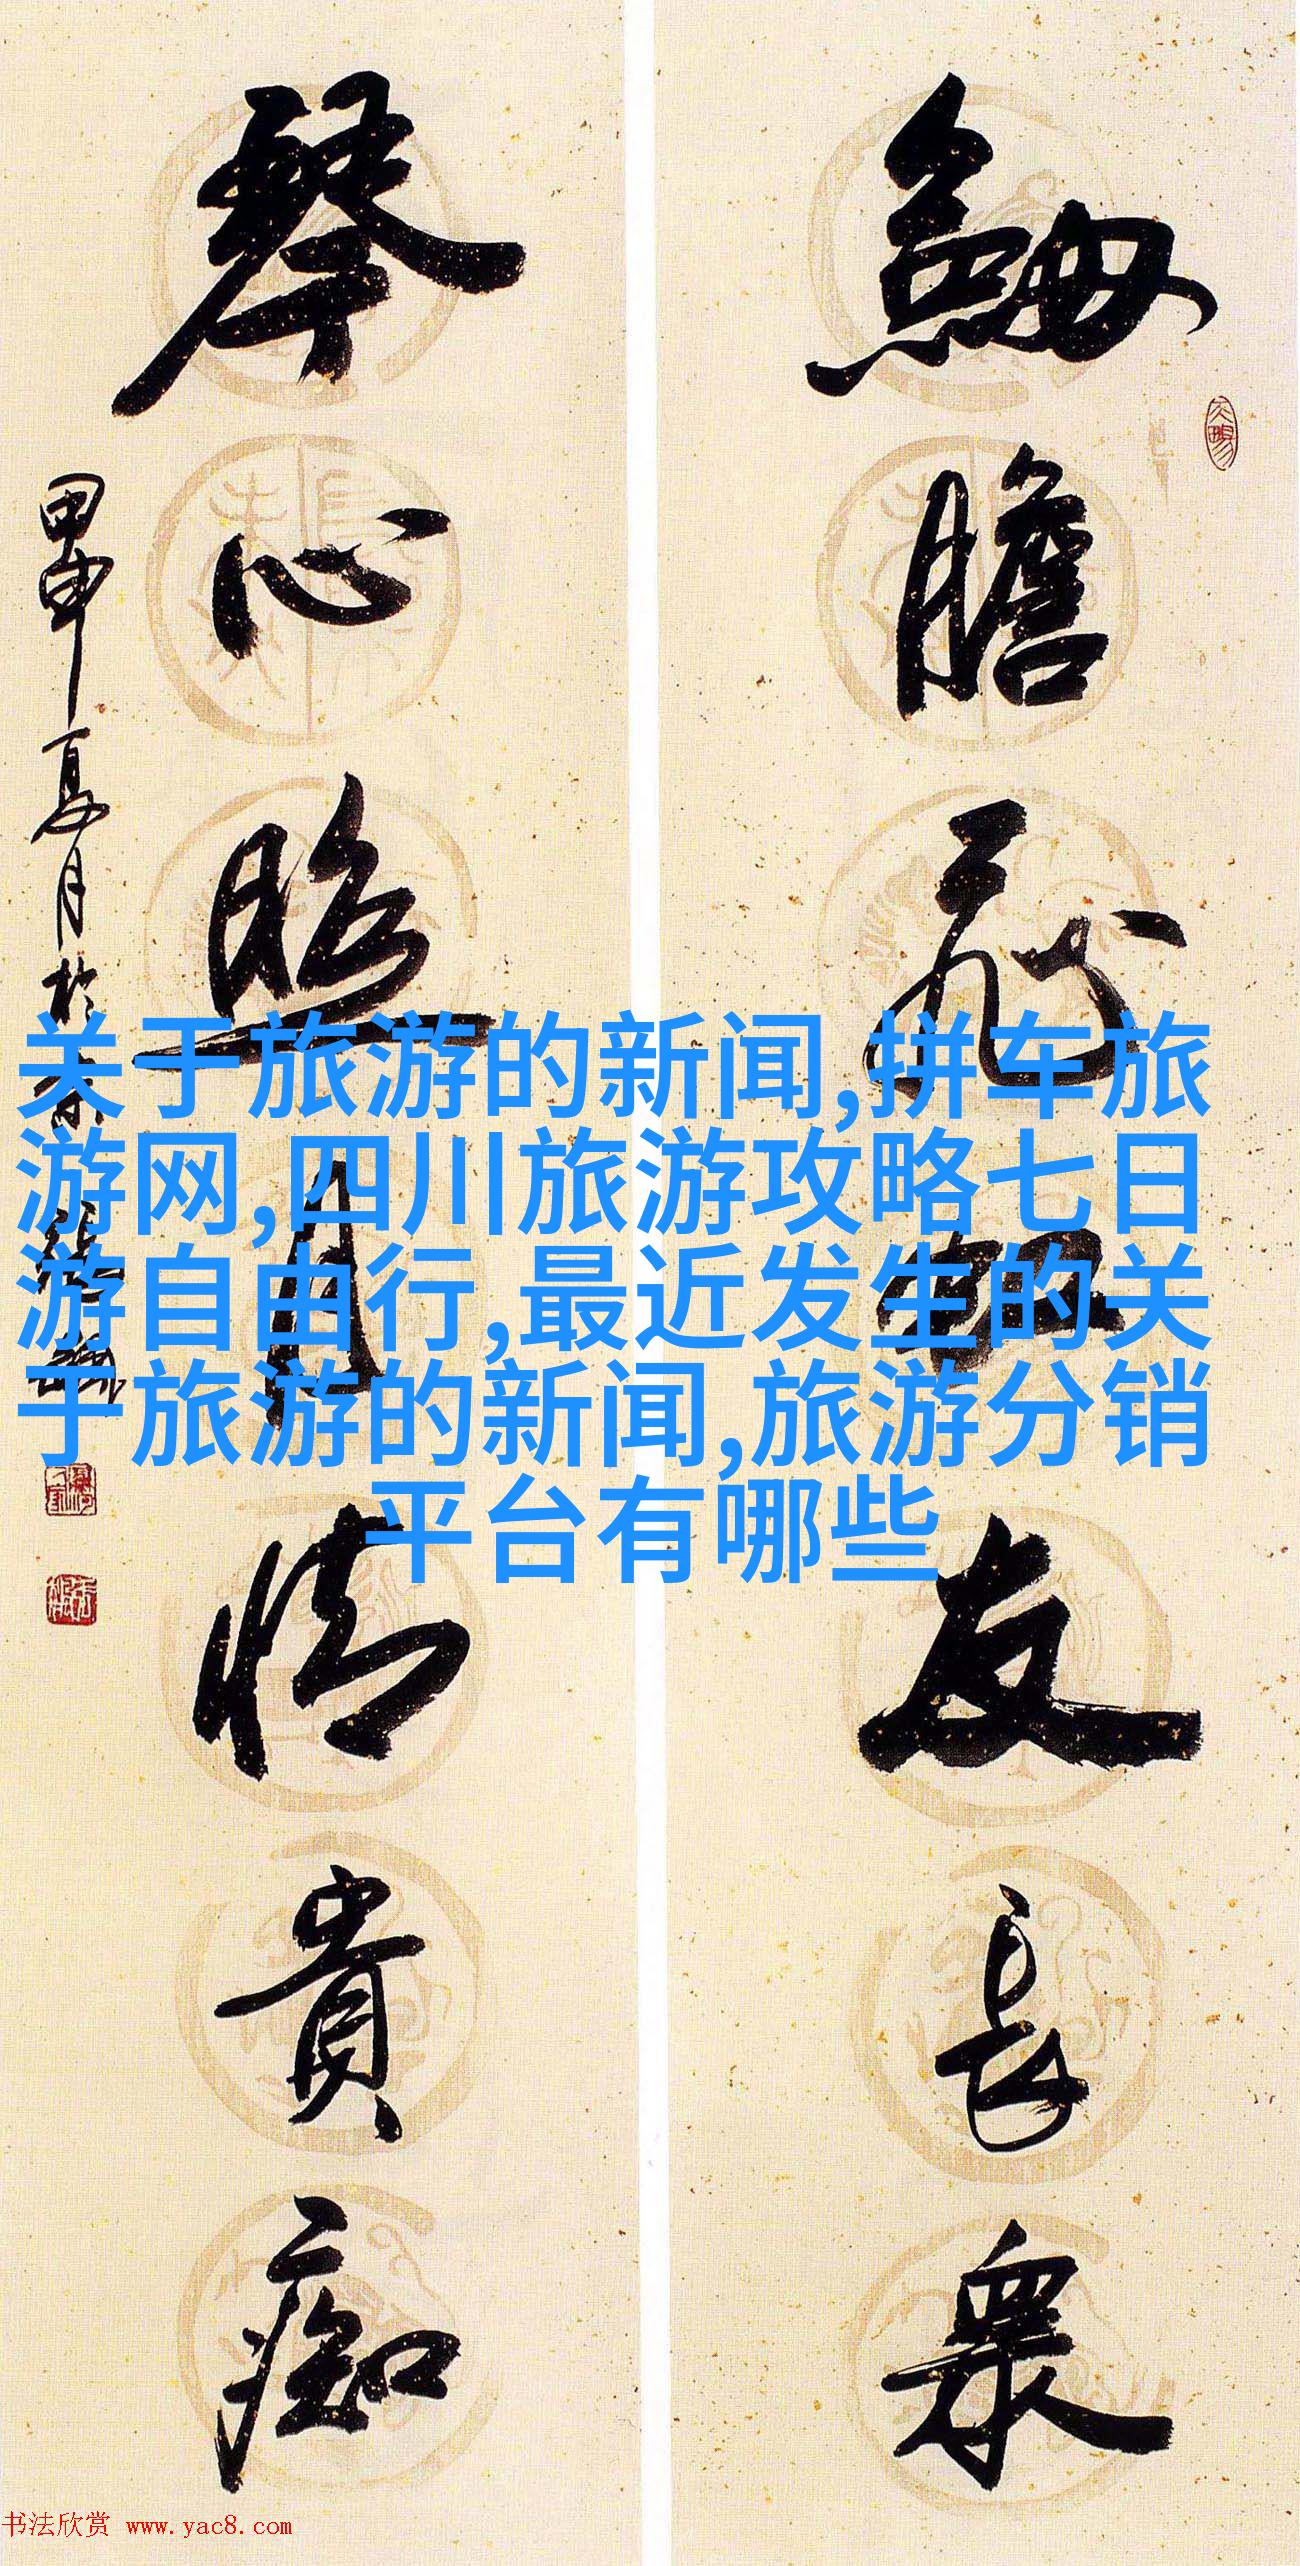 劍膽友長眾
琴心照月情貴痴
甲申夏月於京
关于旅游的新闻,拼车旅
游网,四川旅游攻略七日
游自由行,最近发生的关
于旅游的新闻,旅游分销
平台有哪些
书法欣赏 www.yac8.com